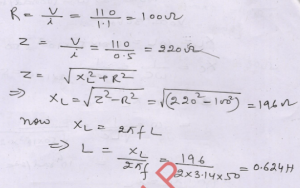 R = V/i = 110/1.1 = 100Ω
Z = V/i = 110/0.5 = 220Ω
Z = √(X_L² + R²)
⇒ X_L = √(Z² - R²) = √(220² - 100²) = 196Ω
now X_L = 2πfL
⇒ L = X_L/2πf = 196/2×3.14×50 = 0.624H